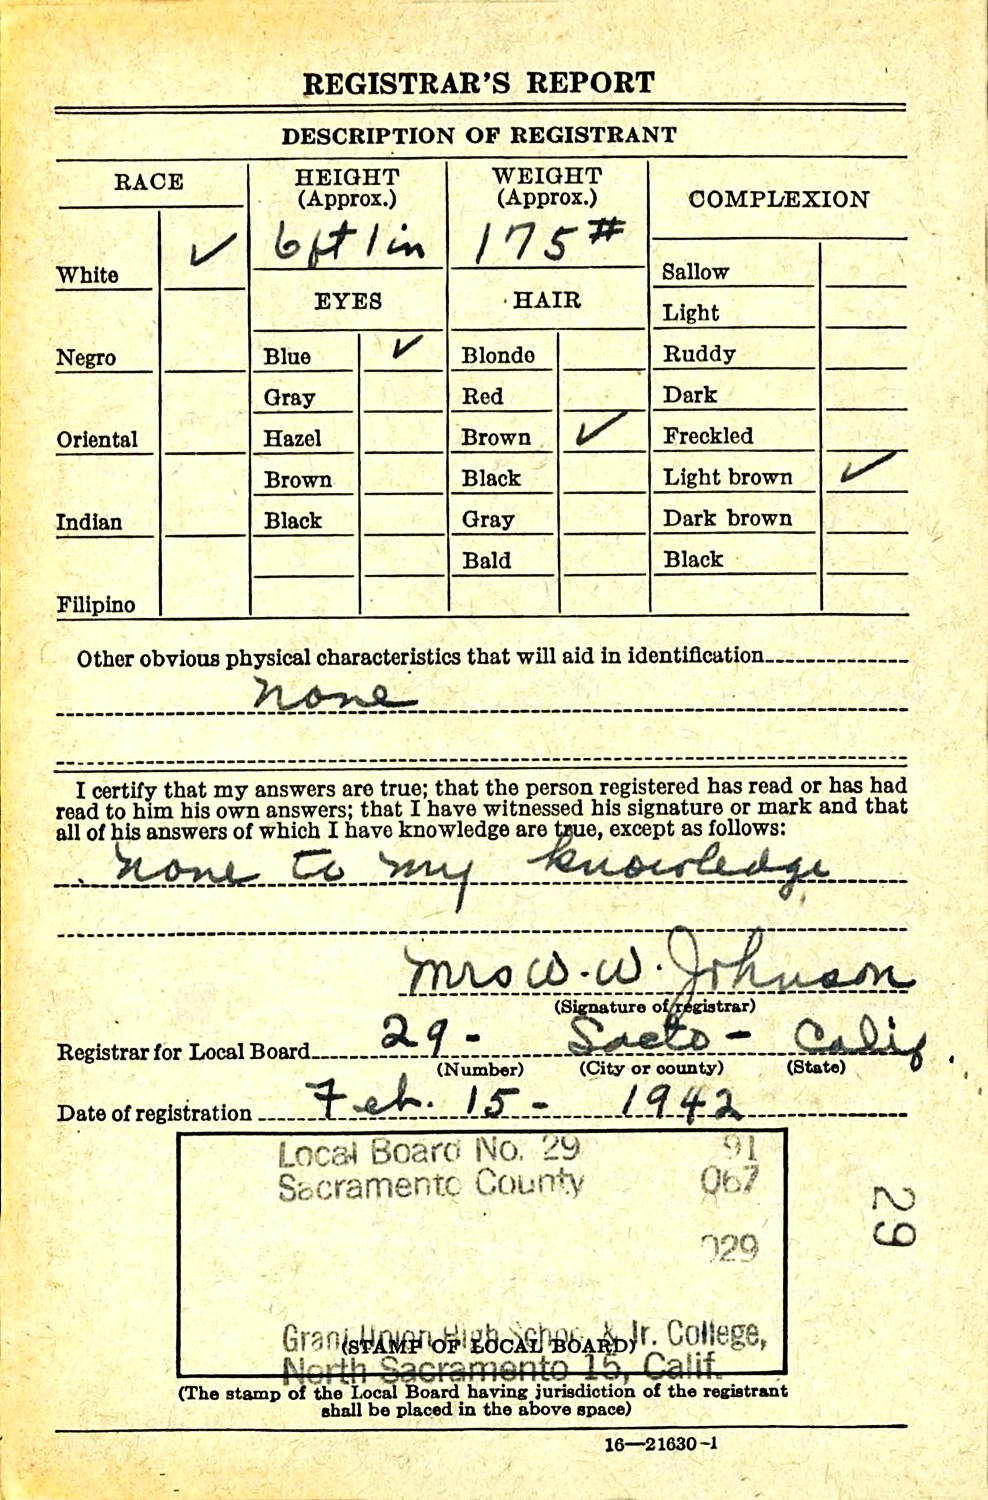 REGISTRAR'S REPORT
DESCRIPTION OF REGISTRANT
RACE
HEIGHT
(Approx.)
WEIGHT
(Approx.)
COMPLEXION
6 ft 1 in
175 #
White ✓
EYES
HAIR
Sallow
Light
Negro
Blue ✓
Blonde
Ruddy
Gray
Red
Dark
Oriental
Hazel
Brown ✓
Freckled
Brown
Black
Light brown ✓
Indian
Black
Gray
Dark brown
Bald
Black
Filipino
Other obvious physical characteristics that will aid in identification
none
I certify that my answers are true; that the person registered has read or has had
read to him his own answers; that I have witnessed his signature or mark and that
all of his answers of which I have knowledge are true, except as follows:
none to my knowledge
Mrs W. W. Johnson
(Signature of registrar)
Registrar for Local Board 29 - Sacto - Calif.
(Number) (City or county) (State)
Date of registration Feb. 15 - 1942
Local Board No. 29 91
Sacramento County 067
029
29
Grant Union High School & Jr. College,
(STAMP OF LOCAL BOARD)
North Sacramento 15, Calif.
(The stamp of the Local Board having jurisdiction of the registrant
shall be placed in the above space)
16—21630-1